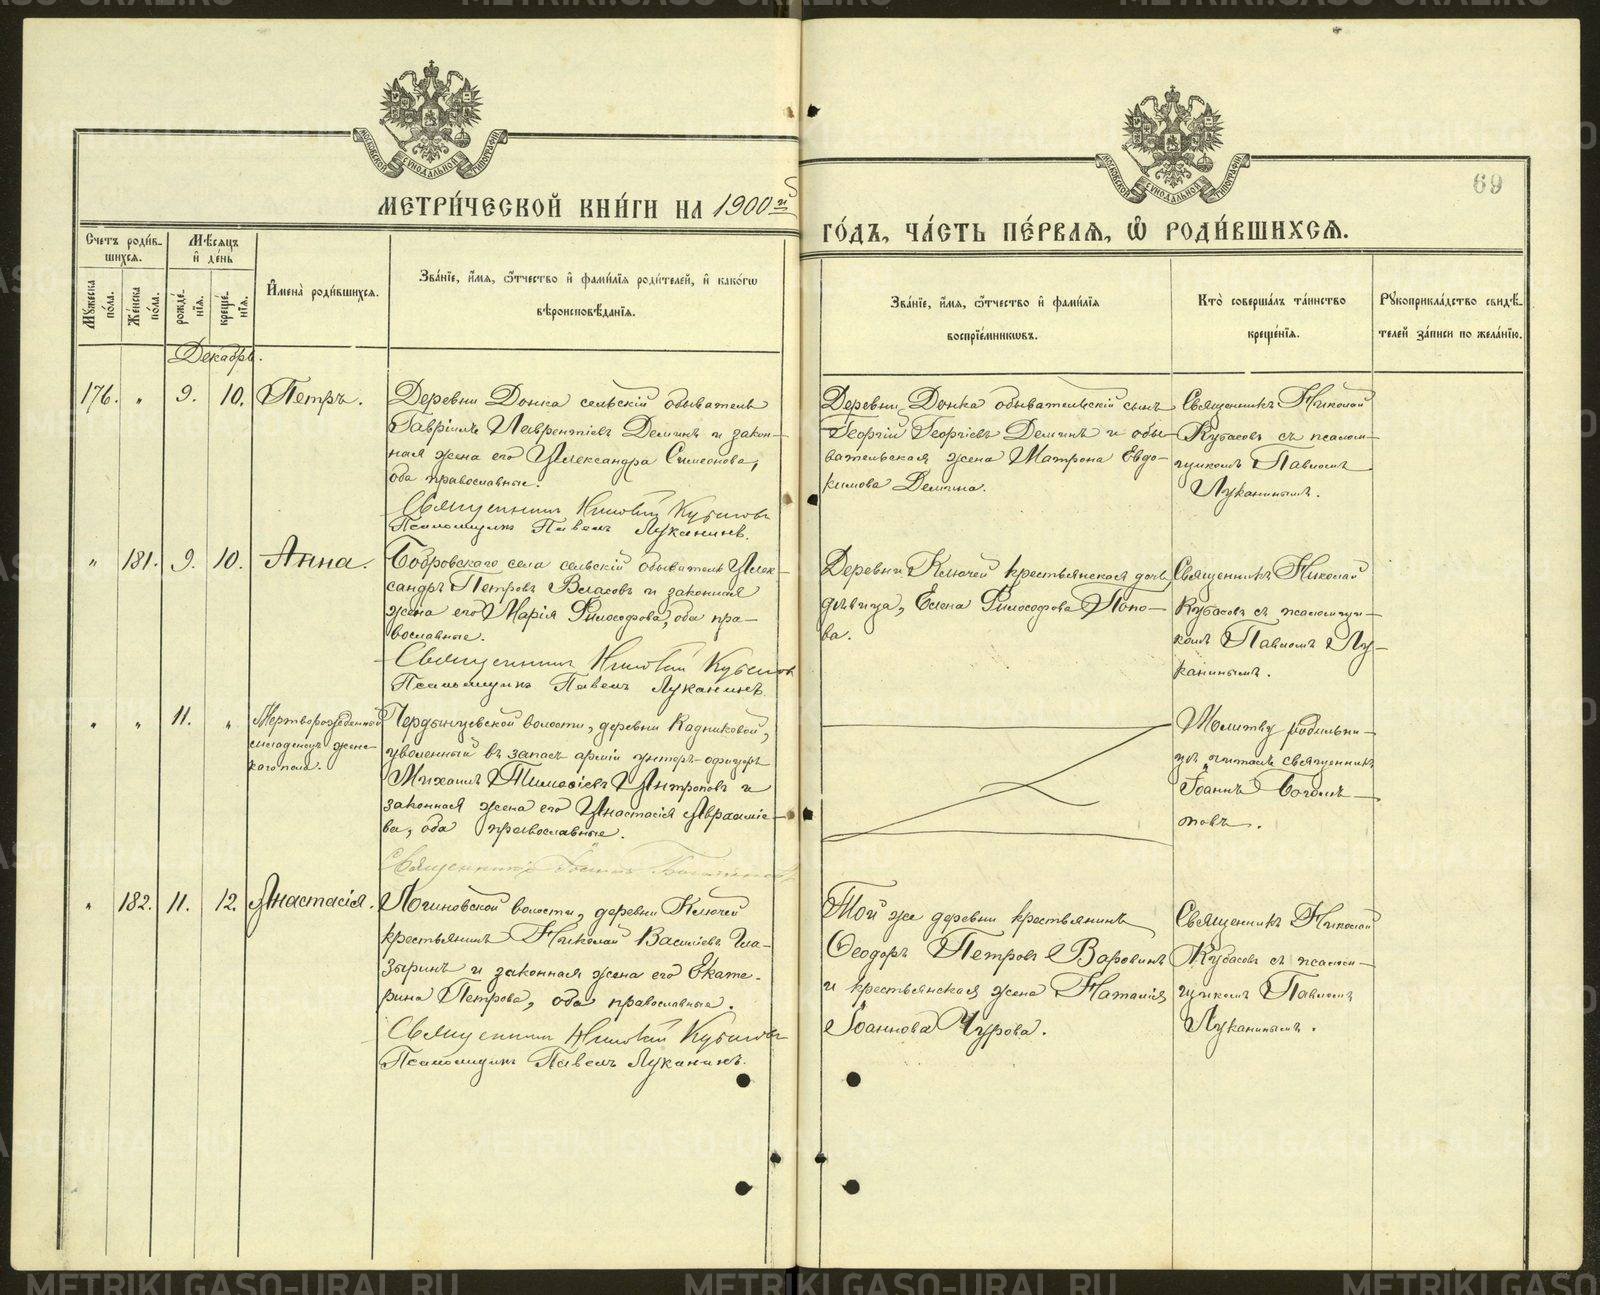 МЕТРИ́ЧЕСКОЙ КНИ́ГИ НА 1900й
ГО́ДЪ, ЧА́СТЬ ПЕ́РВАѦ, Ѽ РОДИ́ВШИХСѦ.
69
МОСКОВСКОЙ СѴНОДАЛЬНОЙ ТИПОГРАФІИ
МОСКОВСКОЙ СѴНОДАЛЬНОЙ ТИПОГРАФІИ
Счетъ роди́в-
шихся.
Мꙋжеска по́ла.
Же́нска по́ла.
Мѣ́сяцъ и҆ де́нь
рожде́нїѧ.
креще́нїѧ.
И҆мена̀ роди́вшихся.
Зва́нїе, и҆́мя, ѻ҆́тчество и҆ фами́лїѧ роди́телей, и҆ како́гѡ
вѣроисповѣ́данїѧ.
Зва́нїе, и҆́мя, ѻ҆́тчество и҆ фами́лїѧ
воспрїе́мникѡвъ.
Кто̀ соверша́лъ та́инство
креще́нїѧ.
Рꙋкоприкла́дство свидѣ́-
телей за́писи по жела́нїю.
Декабрь.
176. " 9. 10. Петръ.
Деревни Донка сельскій обыватель
Гавріилъ Лаврентіевъ Деминъ и закон-
ная жена его Александра Симеонова,
оба православные.
Священникъ Николай Кубасовъ
Псаломщикъ Павелъ Луканинъ.
Деревни Донка обывательскій сынъ
Георгій Георгіевъ Деминъ и обы-
вательская жена Матрона Евдо-
кимова Демина.
Священникъ Николай
Кубасовъ съ псалом-
щикомъ Павломъ
Луканинымъ.
" 181. 9. 10. Анна.
Бобровскаго села сельскій обыватель Алек-
сандръ Петровъ Власовъ и законная
жена его Марія Философова, оба пра-
вославные.
Священникъ Николай Кубасовъ
Псаломщикъ Павелъ Луканинъ.
Деревни Ключей крестьянская дочь,
дѣвица, Елена Философова Попо-
ва.
Священникъ Николай
Кубасовъ съ псаломщи-
комъ Павломъ Лу-
канинымъ.
" " 11. " Мертворожденный
младенецъ женс-
каго пола.
Чердынцевской волости, деревни Кадниковой,
уволенный въ запасъ арміи унтеръ-офицеръ
Михаилъ Тимофеевъ Антроповъ и
законная жена его Анастасія Аврааміе-
ва, оба православные.
Священникъ Іоаннъ Боголѣповъ
Молитву родильни-
цѣ читалъ священникъ
Іоаннъ Боголѣ-
повъ.
" 182. 11. 12. Анастасія.
Логиновской волости, деревни Ключей
крестьянинъ Николай Васильевъ Гла-
зыринъ и законная жена его Екате-
рина Петрова, оба православные.
Священникъ Николай Кубасовъ
Псаломщикъ Павелъ Луканинъ.
Той же деревни крестьянинъ
Ѳеодоръ Петровъ Варовинъ
и крестьянская жена Наталія
Іоаннова Чурова.
Священникъ Николай
Кубасовъ съ псалом-
щикомъ Павломъ
Луканинымъ.
METRIKI.GASO-URAL.RU